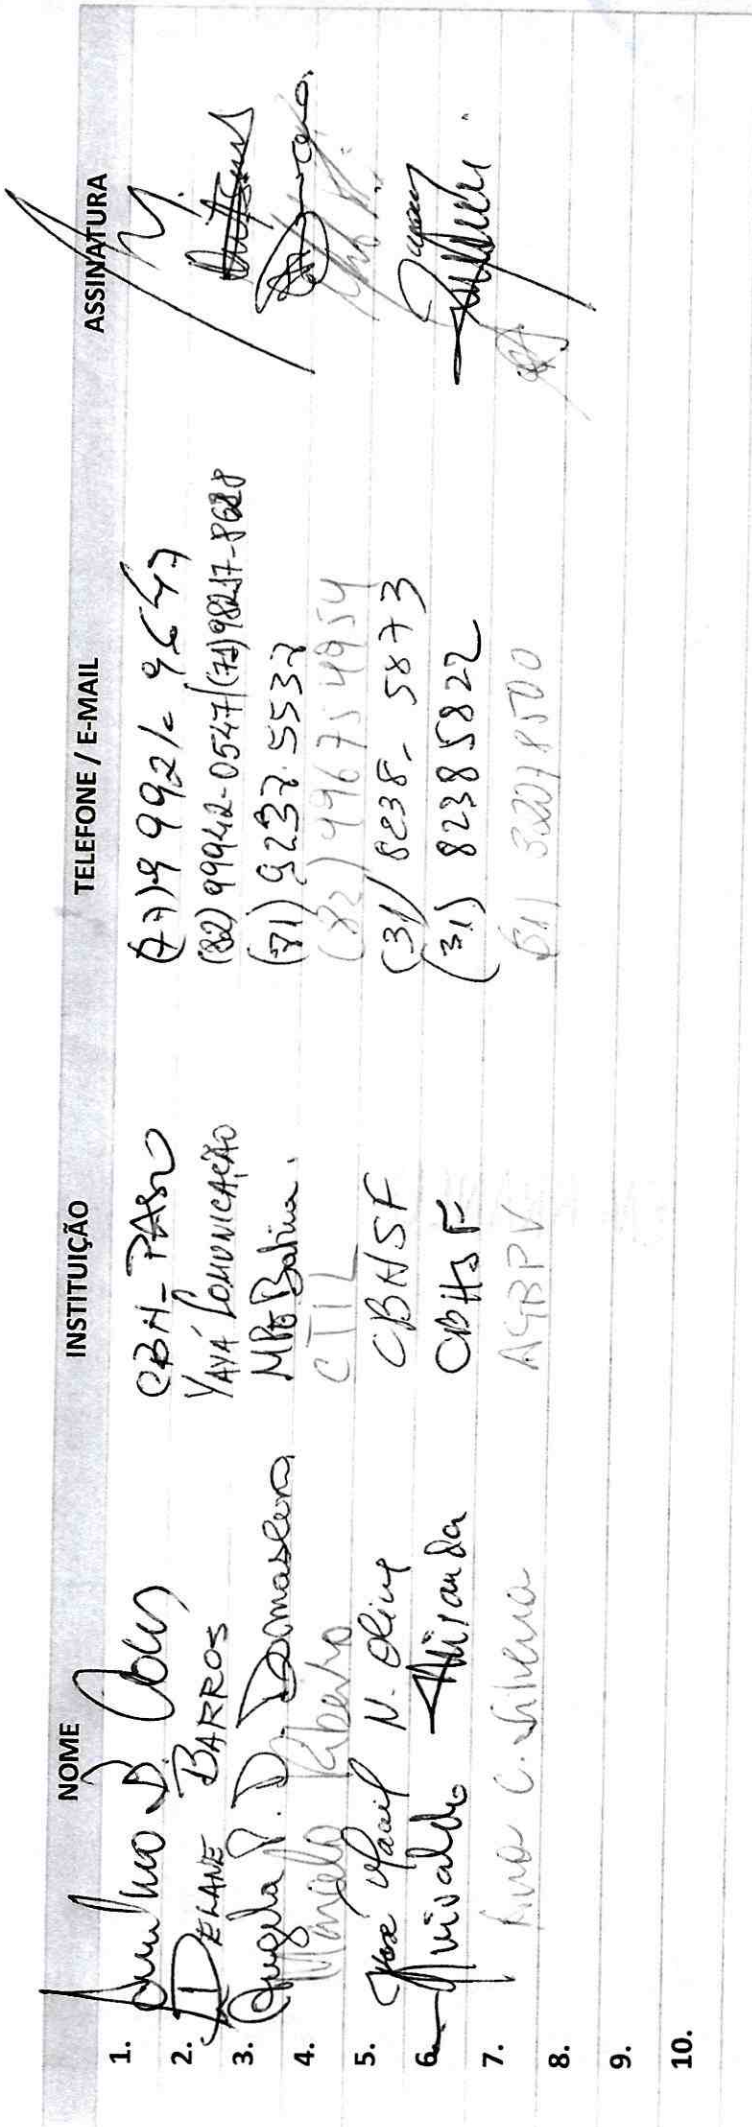 NOME INSTITUIÇÃO TELEFONE / E-MAIL ASSINATURA
1. D. CBH-PASO (77) 9 9921-9647
2. DELANE BARROS YAYÁ COMUNICAÇÃO (82) 99942-0547/(71)98217-8628
3. Angela P. D. Damasceno MPE Bahia. (71) 9237.5537
4. Marcelo Ribeiro CTIL (82) 996754954
5. José Maciel N. Oliveira CBHSF (31) 8238-5873
6. Anivaldo Miranda CBHSF (31) 82385822
7. Ana C. Silveira AGBPV (31) 32078500
8.
9.
10.